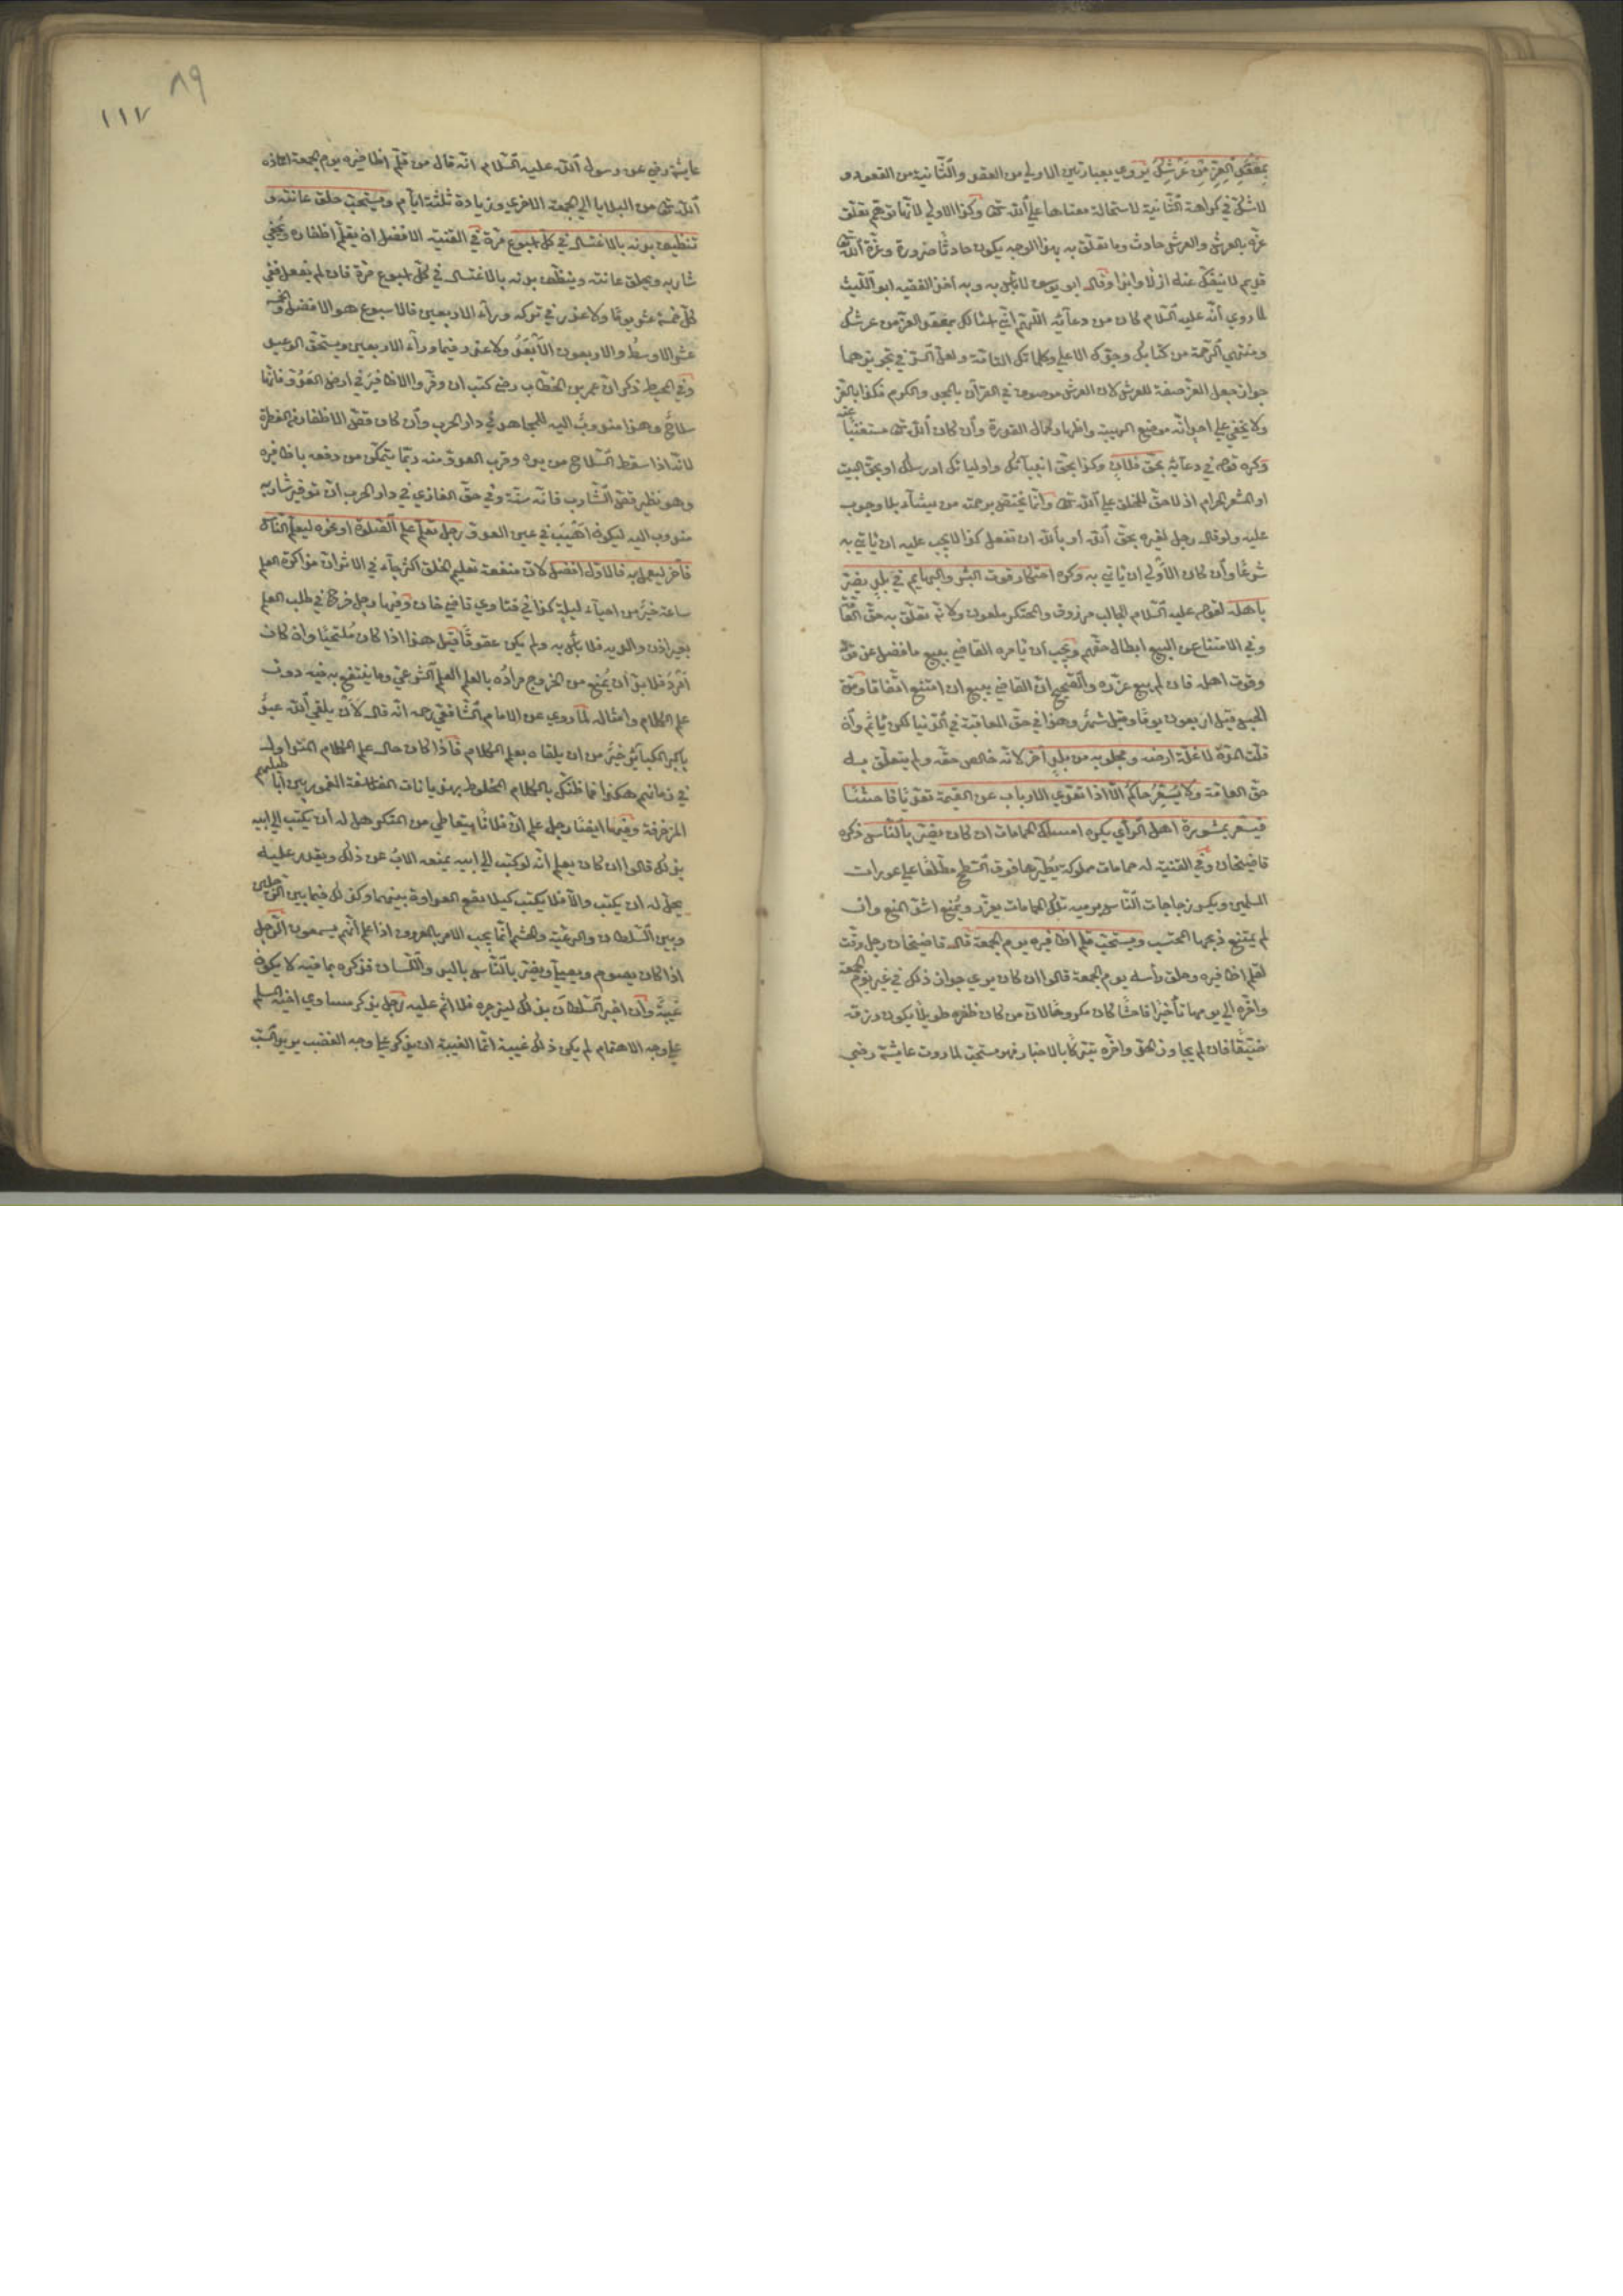 بمقعد العز من عرشك يروي بعبارتين الاولي من العقد والثانية من القعود و
لا شك في كراهة الثانية لاستحالة معناها علي الله تع وكذا الاولي لانها توهم تعلق
عزه بالعرش والعرش حادث وما تعلق به بهذا الوجه يكون حادثا ضرورة وعزة الله تع
قديم لا ينفك عنه ازلا وابدا وقال ابو يوسف لا بأس به وبه اخذ الفقيه ابو الليث
لما روي انه عليه السلام كان من دعائه اللهم اني اسئلك بمعقد العز من عرشك
ومنتهي الرحمة من كتابك وجدك الاعلي وكلماتك التامة ولعل السر في تجويزهما
جواز جعل العز صفة للعرش لان العرش موصوف في القرآن بالمجد والكرم فكذا بالعز
ولا يخفي علي احد انه موضع الهيبة واظهار كمال القدرة وان كان الله تع مستغنيا عنه
وكره قوله في دعائه بحق فلان وكذا بحق انبيائك واوليائك او رسلك او بحق البيت
او المشعر الحرام اذ لا حق للخلق علي الله تع وانما يختص برحمته من يشاء بلا وجوب
عليه ولو قال رجل لغيره بحق الله او بالله ان تفعل كذا لا يجب عليه ان ياتي به
شرعا وان كان الاولي ان ياتي به وكره احتكار قوت البشر والبهايم في بلد يضر
باهله لقوله عليه السلام الجالب مرزوق والمحتكر ملعون ولانه تعلق به حق العامة
وفي الامتناع عن البيع ابطال حقهم ويجب ان يامره القاضي ببيع ما فضل عن قوته
وقوت اهله فان لم يبع عزره والصحيح ان القاضي يبيع ان امتنع اتفاقا ومدة
الحبس قيل اربعون يوما وقيل شهر وهذا في حق المعاقبة في الدنيا لكن ياثم وان
قلت المدة لا غلة ارضه ومجلوبه من بلد آخر لانه خالص حقه ولم يتعلق به
حق العامة ولا يسعر حاكم الا اذا تعدي الارباب عن القيمة تعديا فاحشا
فيسعر بمشورة اهل الرأي يكره امساك الحمامات ان كان يضر بالناس ذكره
قاضيخان وفي القنية له حمامات مملوكة يطيرها فوق السطح مطلعا علي عورات
المسلمين ويكسر زجاجات الناس برميه تلك الحمامات يعزر ويمنع اشد المنع وان
لم يمتنع ذبحها المحتسب ويستحب قلم اظافيره يوم الجمعة قال قاضيخان رجل وقت
لقلم اظافيره وحلق رأسه يوم الجمعة قالوا ان كان يري جواز ذلك في غير يوم الجمعة
واخره الي يومها تأخيرا فاحشا كان مكروها لان من كان ظفره طويلا يكون رزقه
ضيقا فان لم يجاوز الحد واخره تبركا بالاخبار فهو مستحب لما روت عايشة رضي
٨٩
١١٧
عايشة رضي عن رسول الله عليه السلام انه قال من قلم اظافيره يوم الجمعة اعاذه
الله تع من البلايا الي الجمعة الاخري وزيادة ثلثة ايام ويستحب حلق عانته و
تنظيف بدنه بالاغتسال في كل اسبوع مرة في القنية الافضل ان يقلم اظفاره ويحفي
شاربه ويحلق عانته وينظف بدنه بالاغتسال في كل اسبوع مرة فان لم يفعل ففي
كل خمسة عشر يوما ولا عذر في تركه وراء الاربعين فالاسبوع هو الافضل والخمسة
عشر الاوسط والاربعون الابعد ولا عذر فيما وراء الاربعين ويستحق الوعيد
وفي المحيط ذكر ان عمر بن الخطاب رضي كتب ان وفروا الاظافير في ارض العدو فانها
سلاح وهذا مندوب اليه للمجاهد في دار الحرب وان كان قص الاظفار من الفطرة
لانه اذا سقط السلاح من يده وقرب العدو منه ربما يتمكن من دفعه باظافيره
وهو نظير قص الشارب فانه سنة وفي حق الغازي في دار الحرب ان توفير شاربه
مندوب اليه ليكون اهيب في عين العدو رجل تعلم علم الصلوة او نحوه ليعلم الناس
فآخر ليعمل به فالاول افضل لان منفعة تعليم الخلق اكثر جاء في الاثر ان مذاكرة العلم
ساعة خير من احياء ليلة كذا في فتاوي قاضي خان وفيها رجل خرج في طلب العلم
بغير اذن والديه فلا بأس به ولم يكن عقوقا قيل هذا اذا كان ملتحيا وان كان
امرد فلا بد ان يمنع من الخروج مراده بالعلم العلم الشرعي وما ينتفع به فيه دون
علم الكلام وامثاله لما روي عن الامام الشافعي رحمه انه قال لان يلقي الله عبد
باكبر الكبائر خير من ان يلقاه بعلم الكلام فاذا كان حال علم الكلام المتداول
في زمانهم هكذا فما ظنك بالكلام المخلوط بهذيانات الفلاسفة المغمور بين اباطيلهم
المزخرفة وفيها ايضا رجل علم ان فلانا يتعاطي من المنكر هل له ان يكتب الي ابيه
بذلك قالوا ان كان يعلم انه لو كتب الي ابيه يمنعه الاب عن ذلك ويقدر عليه
يحل له ان يكتب والا فلا يكتب كيلا يقع العداوة بينهما وكذلك فيما بين الزوجين
وبين السلطان والرعية والحشم انما يجب الامر بالمعروف اذا علم انهم يسمعون الرجل
اذا كان يصوم ويصلي ويضر بالناس باليد واللسان فذكره بما فيه لا يكون
غيبة وان اخبر السلطان بذلك ليزجره فلا اثم عليه رجل يذكر مساوي اخيه المسلم
علي وجه الاهتمام لم يكن ذلك غيبة انما الغيبة ان يذكر علي وجه الغضب يريد السب